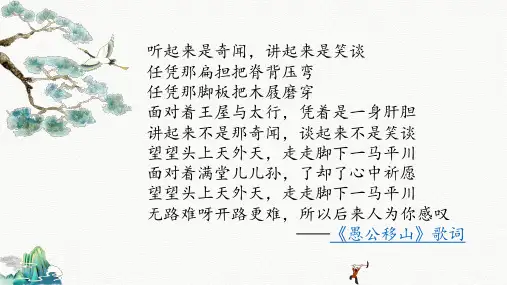 听起来是奇闻，讲起来是笑谈
任凭那扁担把脊背压弯
任凭那脚板把木屐磨穿
面对着王屋与太行，凭着是一身肝胆
讲起来不是那奇闻，谈起来不是笑谈
望望头上天外天，走走脚下一马平川
面对着满堂儿儿孙，了却了心中祈愿
望望头上天外天，走走脚下一马平川
无路难呀开路更难，所以后来人为你感叹
——《愚公移山》歌词